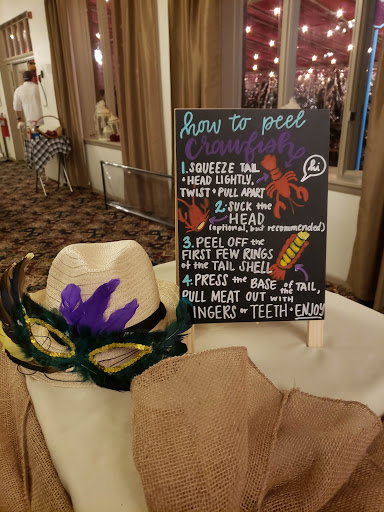 how to peel
crawfish
1. SQUEEZE TAIL
+ HEAD LIGHTLY,
TWIST + PULL APART
hi
2. SUCK the
HEAD
(optional, but recommended)
3. PEEL OFF the
FIRST FEW RINGS
of the TAIL SHELL
4. PRESS the BASE of the TAIL,
PULL MEAT OUT WITH
FINGERS or TEETH + ENJOY